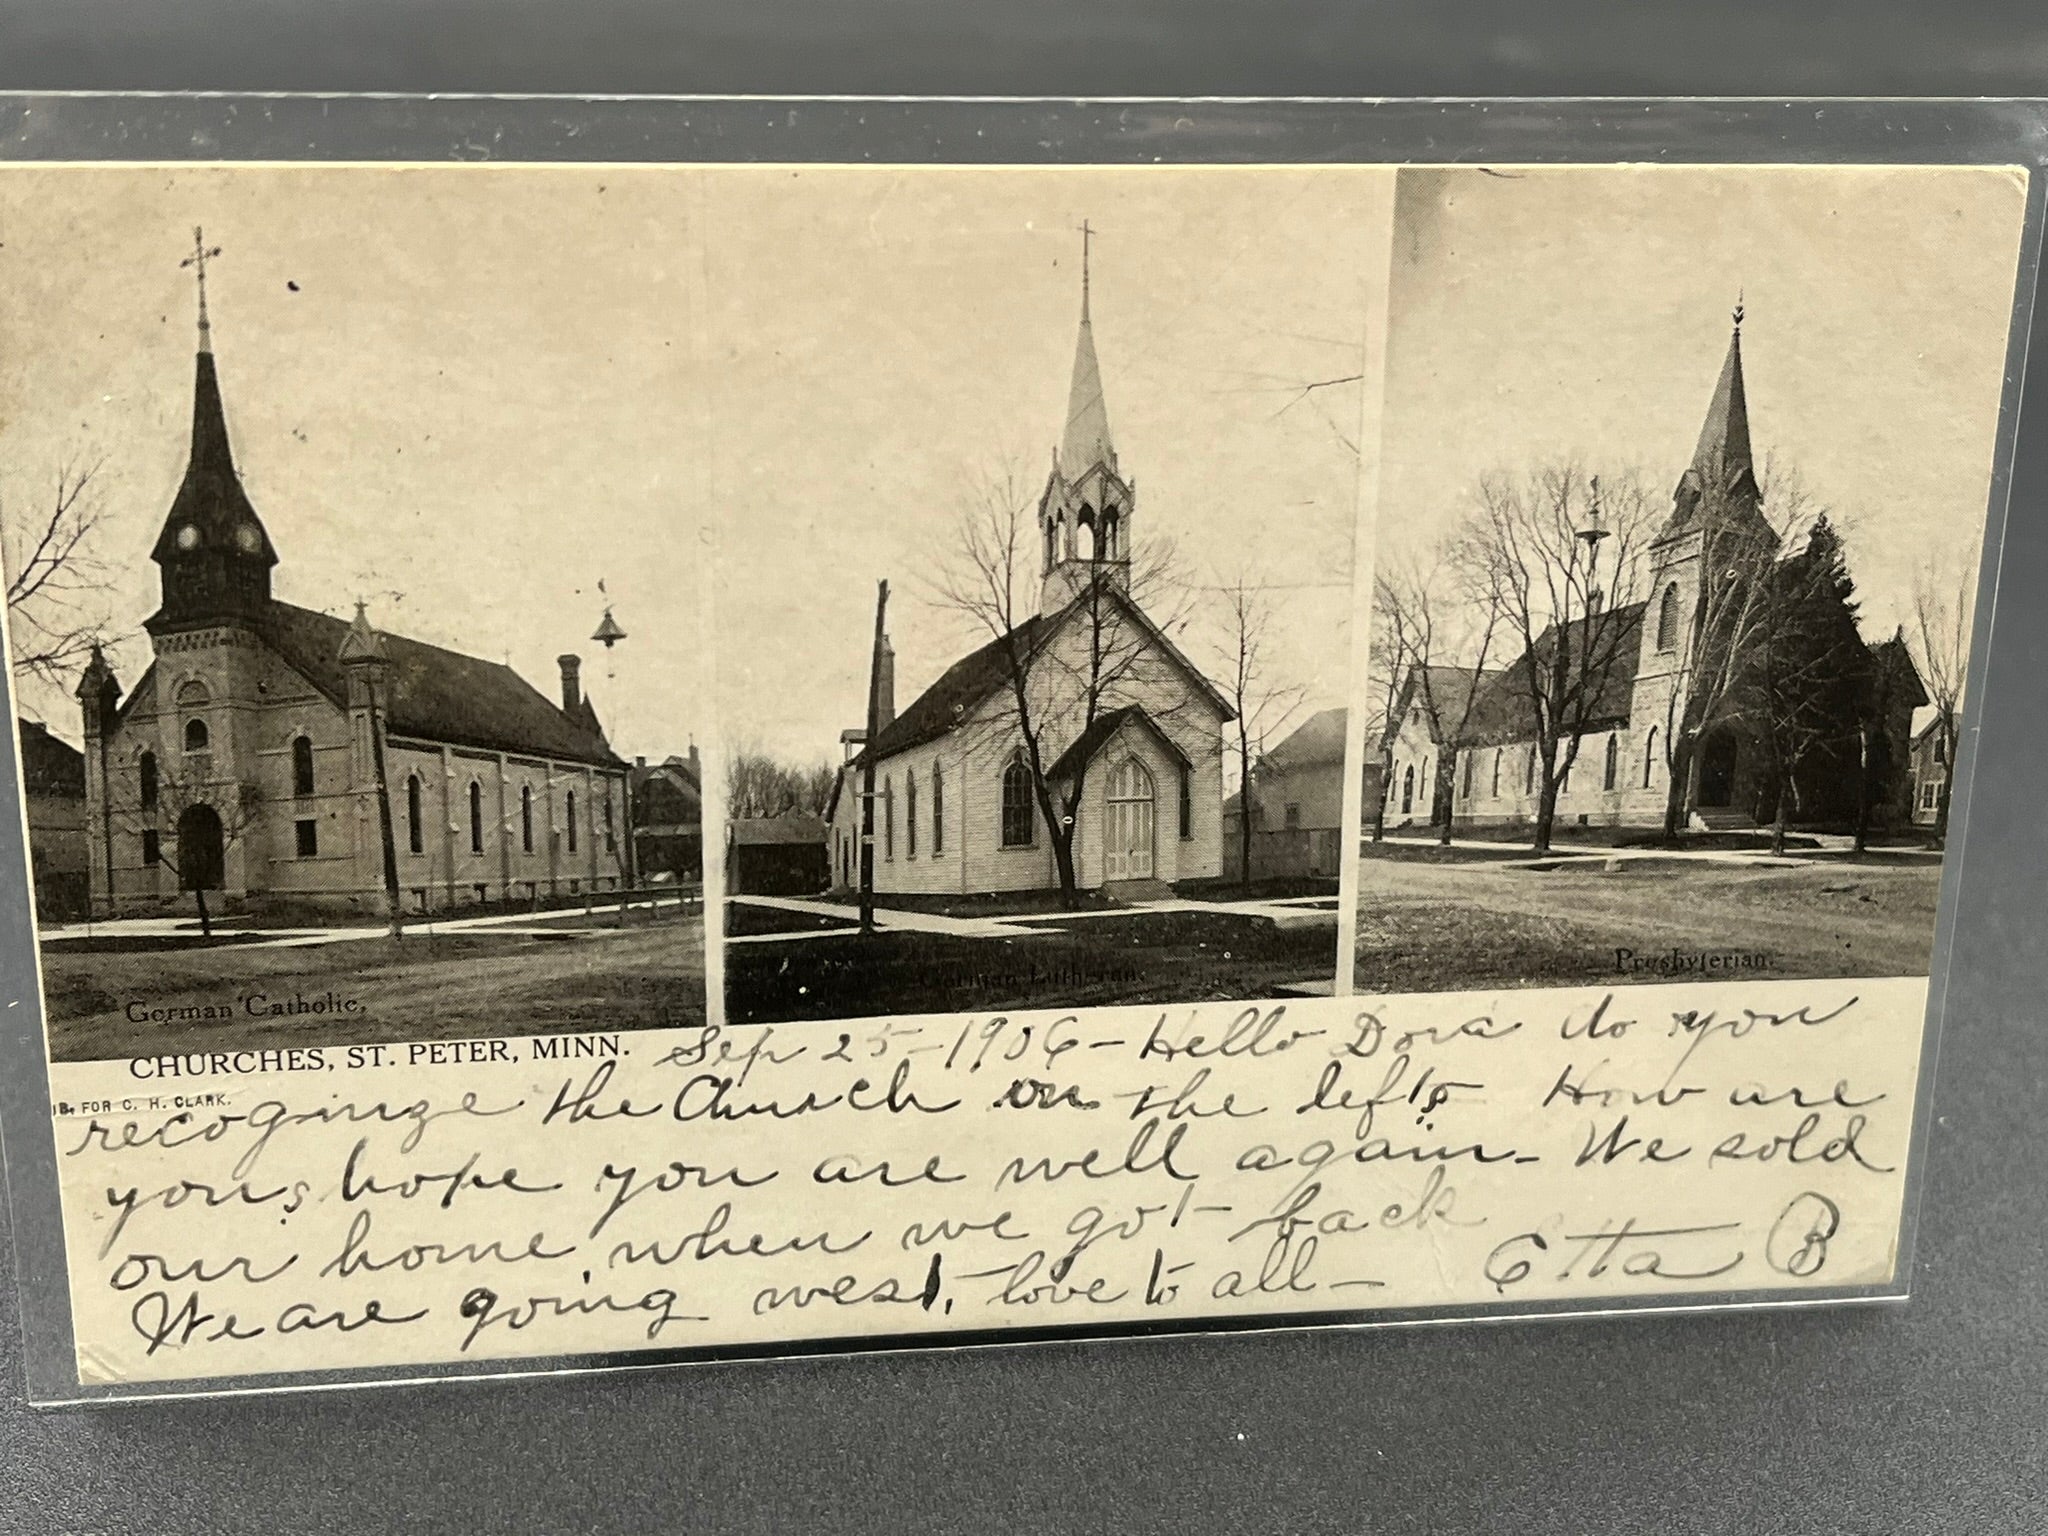 German Catholic.
German Lutheran.
Presbyterian.
CHURCHES, ST. PETER, MINN. Sep 25-1906- Hello Dora do you
FOR C. H. CLARK.
recoginze the Church on the left? How are
you, hope you are well again - We sold
our home when we got back
We are going west, - love to all - Etta B